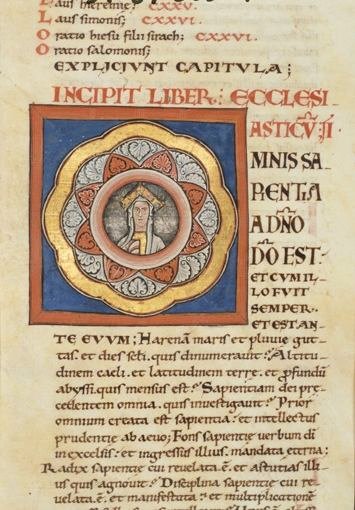 L aus hieremie; CXXV.
L aus simonis; CXXVI.
O ratio hiesu filii sirach; CXXVI.
O ratio salomonis;
EXPLICIUNT CAPITULA;
INCIPIT LIBER: ECCLESI
ASTICV̅; ·JI·
MNIS SA
PIENTIA
A DN̅O
DO̅ EST·
ET CUM IL
LO FUIT
SEMPER·
ET EST AN
TE EVUM; Harenā maris et pluvie gut
tas. et dies sc̄li. quis dinumeravit; Altitu
dinem caeli. et latitudinem terre. et p̄fundū
abyssi. quis mensus est; Sapientiam dei pre
cedentem omnia. quis investigavit; Prior
omnium creata est sapientia. et intellectus
prudentie ab aevo; Fons sapientie verbum di
in excelsis. et ingressus illius. mandata eterna;
Radix sapientie cui revelata ē. et astutias illi
us quis agnovit; Disciplina sapientie cui re
velata ē. et manifestata; et multiplicatione